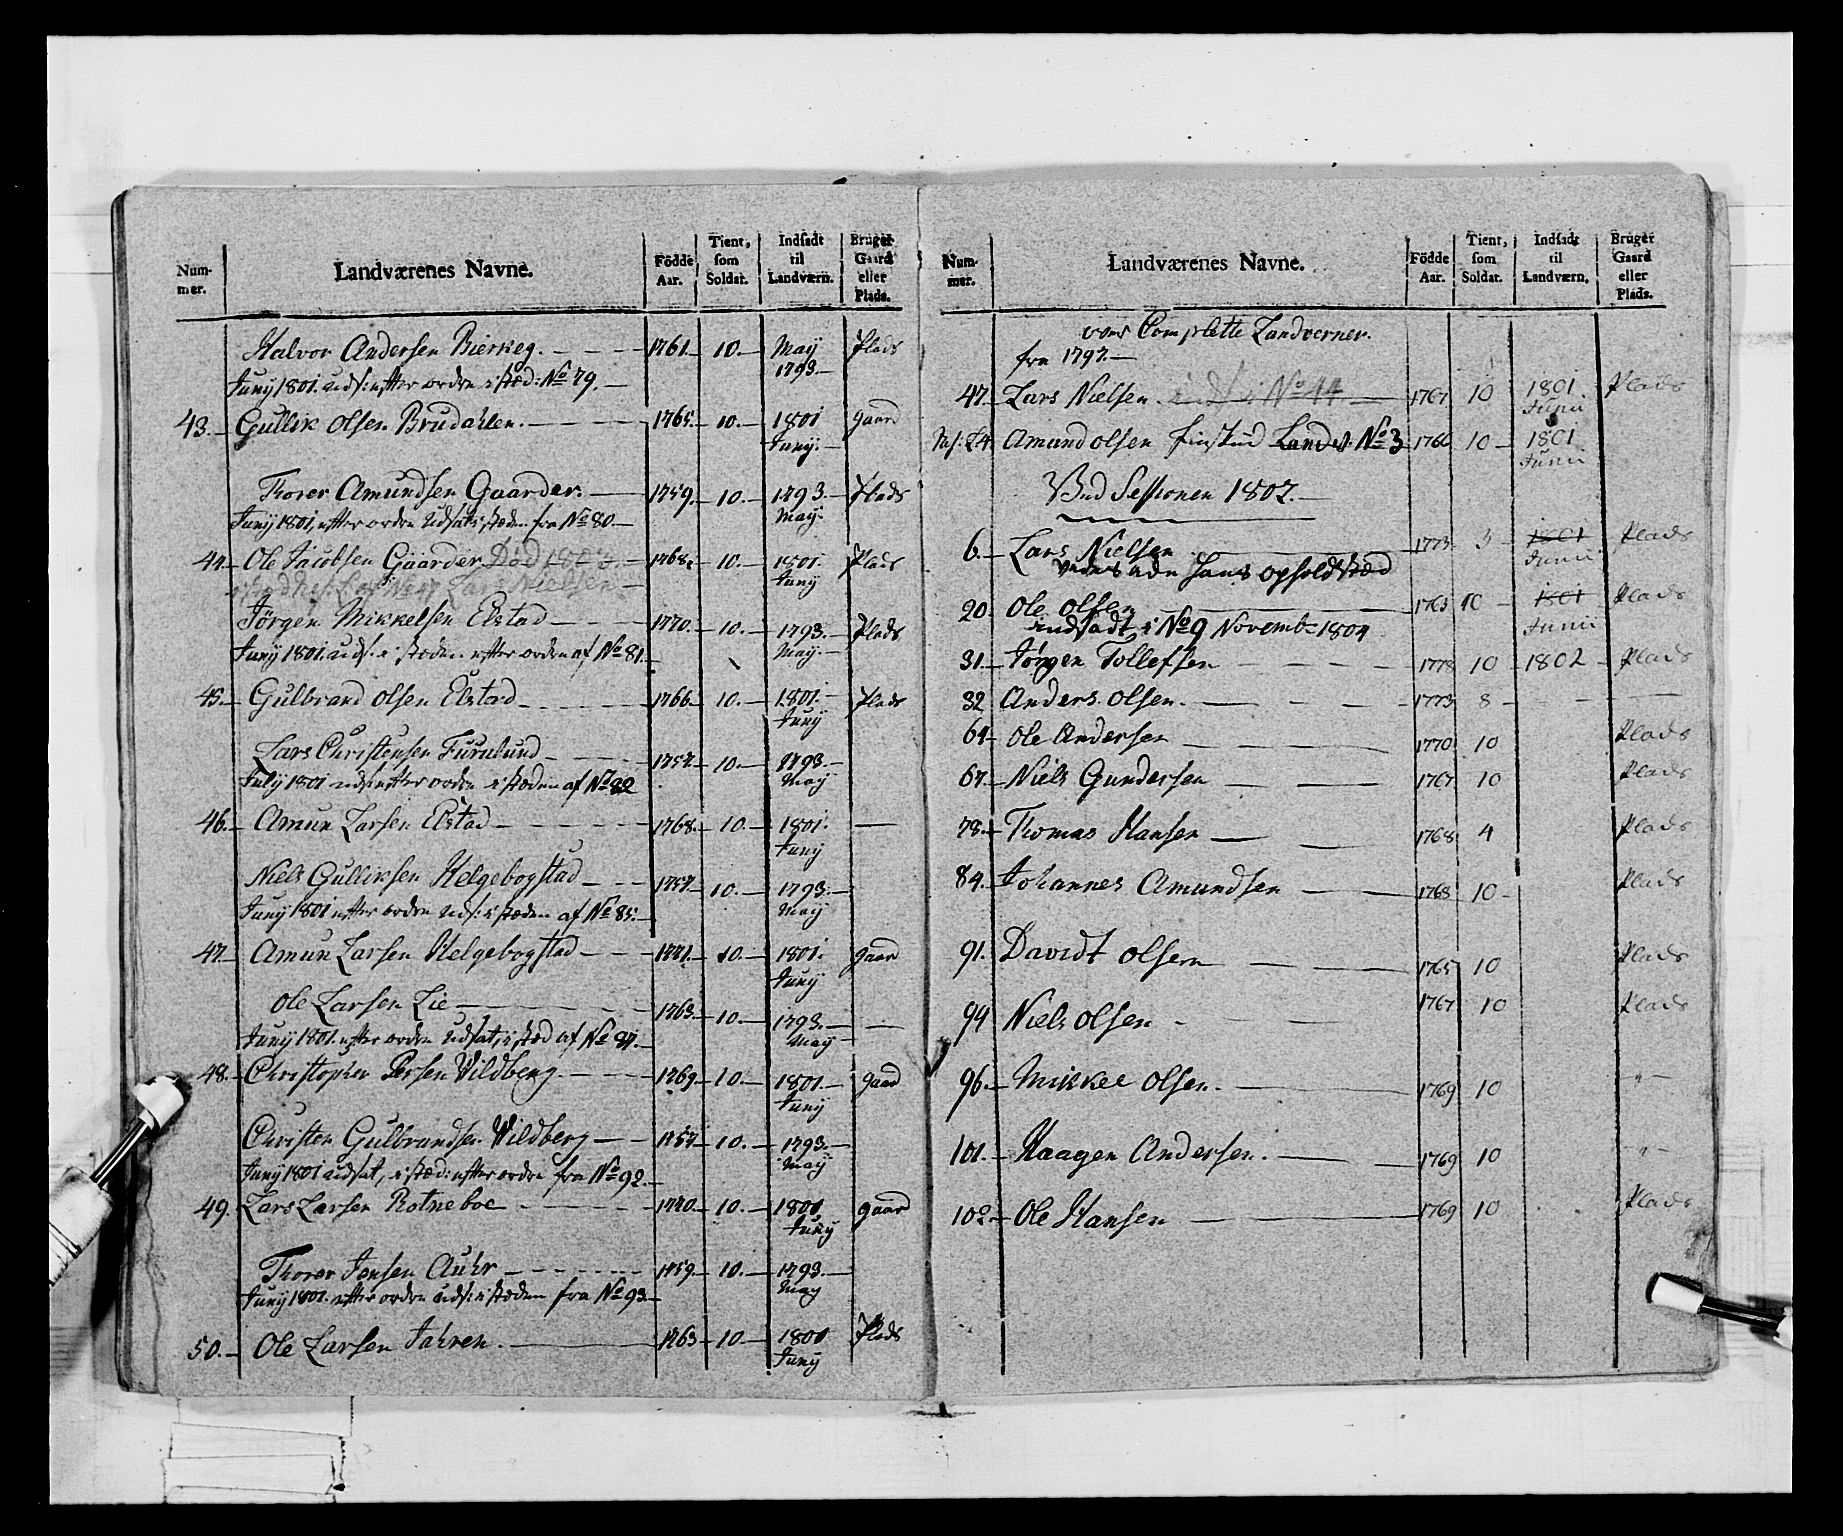 Num-mer. Landværenes Navne. Födde Aar. Tient, som Soldat. Indsadt til Landværn. Bruger Gaard eller Plads.
Halvor Andersen Bierkeg. 1761. 10. May 1793. Plads
Juny 1801. uds: efter ordre i stæd: No 79.
43. Gullik Olsen Brudahlen. 1765. 10. 1801 Juny. gaard
Thorer Amundsen Gaarder. 1759. 10. 1793. May. Plads
Juny 1801, efter ordre Udsat i stæden fra No 80.
44. Ole Jacobsen Gaarder Død 1803. 1768. 10. 1801. Juny Plads
Lars Nielsen
Jørgen Mikkelsen Elstad 1770. 10. 1793. May. Plads
Juny 1801. uds: i stæden efter orden af No 81.
45. Gulbrand Olsen Elstad 1766. 10. 1801. Juny Plads
Lars Christensen Furulund 1757. 10. 1793. May
July 1801 uds: efter ordre i stæden af No 82
46. Amun Larsen Elstad 1768. 10. 1801. Juny —
Niels Gulliksen Helgebogstad 1757. 10. 1793. May
Juny 1801 efter ordre Uds: i stæden af No 85.
47. Amun Larsen Helgebogstad 1771. 10. 1801. Juny gaard
Ole Larsen Lie 1763. 10. 1793. May —
Juny 1801. efter ordre Udsat, i stæd af No 87.
48. Christopher Persen Vildberg. 1769. 10. 1801. Juny gaard
Christen Gulbrandsen Vildberg 1757 10. 1793. May
Juny 1801 udsat, i stæd: efter ordre fra No 92.
49. Lars Larsen Rotneboe 1770. 10. 1801. Juny gaard
Thorer Jensen Auhr 1759. 10. 1793. May
Juny 1801. efter ordre uds: i stæden fra No 93.
50. Ole Larsen Jahren. 1763 10. 1801 Juny Plads
Num-mer. Landværenes Navne. Födde Aar. Tient, som Soldat. Indsadt til Landværn. Bruger Gaard eller Plads.
Complette Landverner.
fra 1797.
47. Lars Nielsen inds: i No 44 1767 10 1801 Junii Plads
Amund Olsen Finstad Landv: No 3 1766 10 1801 Junii
Ved Sessionen 1802.
6. Lars Nielsen 1773 3 1801 Junii Plads
hans opholdstæd
20 Ole Olsen 1763 10 1801 Junii Plads
indsadt i No 9 Novembr 1804
31. Jørgen Tollefsen 1778 10 1802 Plads
32 Anders Olsen. 1773 8 —
64 Ole Andersen 1770 10 Plads
67. Niels Gundersen 1767 10 Plads
78. Thomas Hansen 1768 4 Plads
84. Johannes Amundsen 1768 10 Plads
91. Davidt Olsen 1765 10 Plads
94 Niels Olsen 1767 10 Plads
96. Mikkel Olsen. 1769 10 "
101. Haagen Andersen. 1769 10 "
102. Ole Hansen 1769 10 Plads